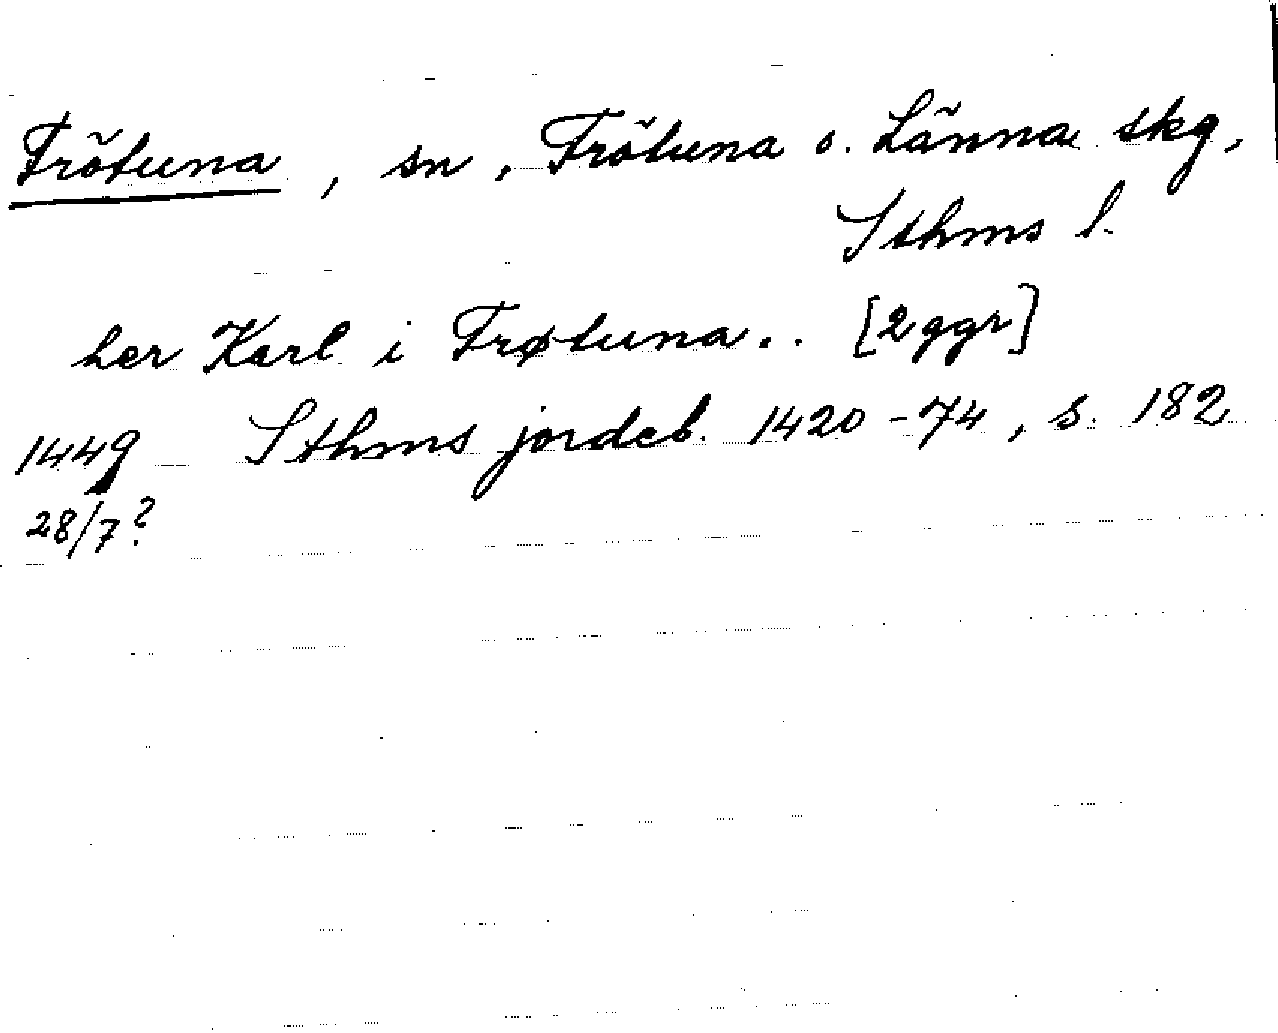 Frötuna, sn, Frötuna o. Länna skg,
Sthms l.
her Karl i Frøtuna.. [2 ggr]
1449 Sthms jordeb. 1420-74, s. 182
28/7?